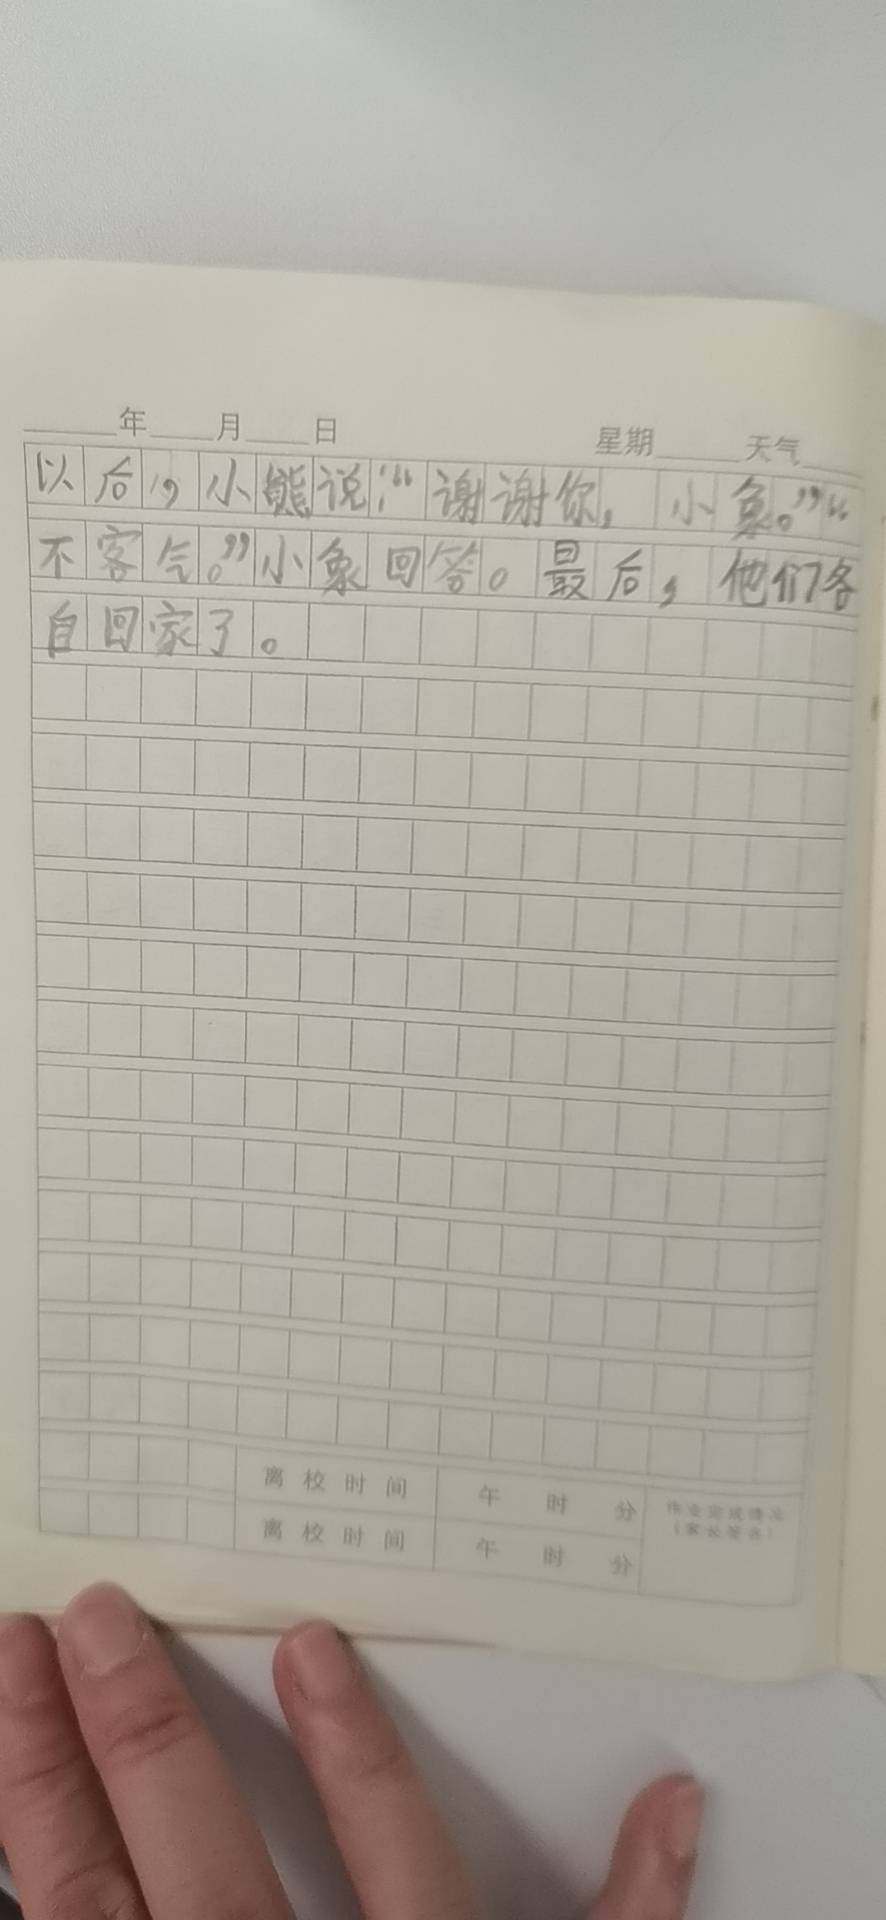 年 月 日 星期 天气
以后，小熊说：“谢谢你，小象。”“
不客气。”小象回答。最后，他们各
自回家了。
离校时间 午 时 分 作业完成情况
（家长签名）
离校时间 午 时 分